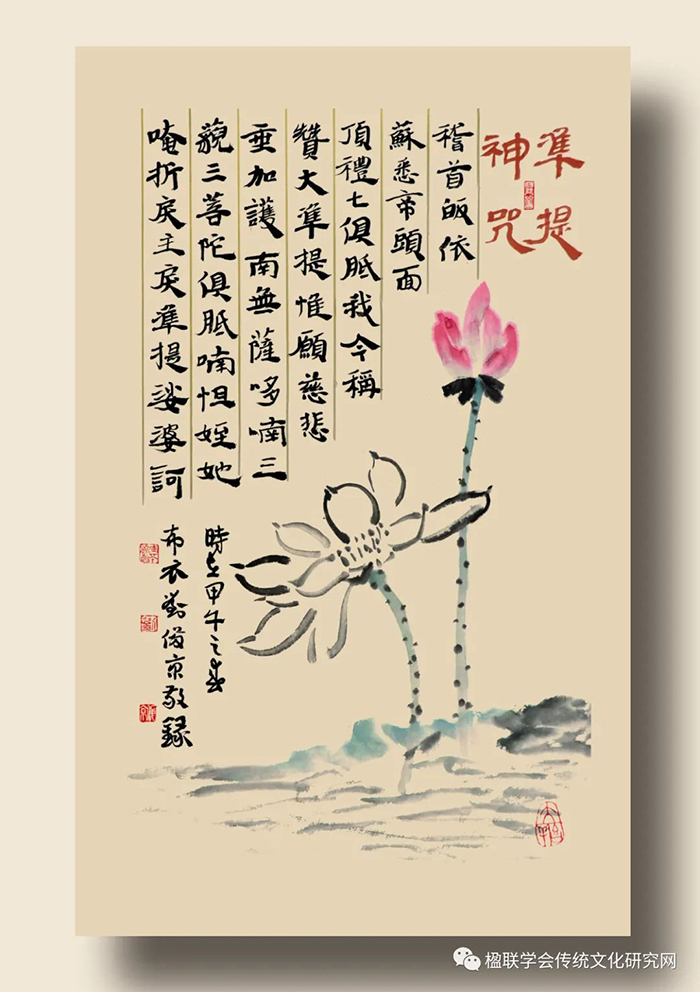 準提
神咒
稽首皈依
蘇悉帝頭面
頂禮七俱胝我今稱
贊大準提惟願慈悲
垂加護南無薩哆喃三
藐三菩陀俱胝喃怛姪她
唵折戾主戾準提娑婆訶
時在甲午之春
布衣劉京敬錄
楹联学会传统文化研究网